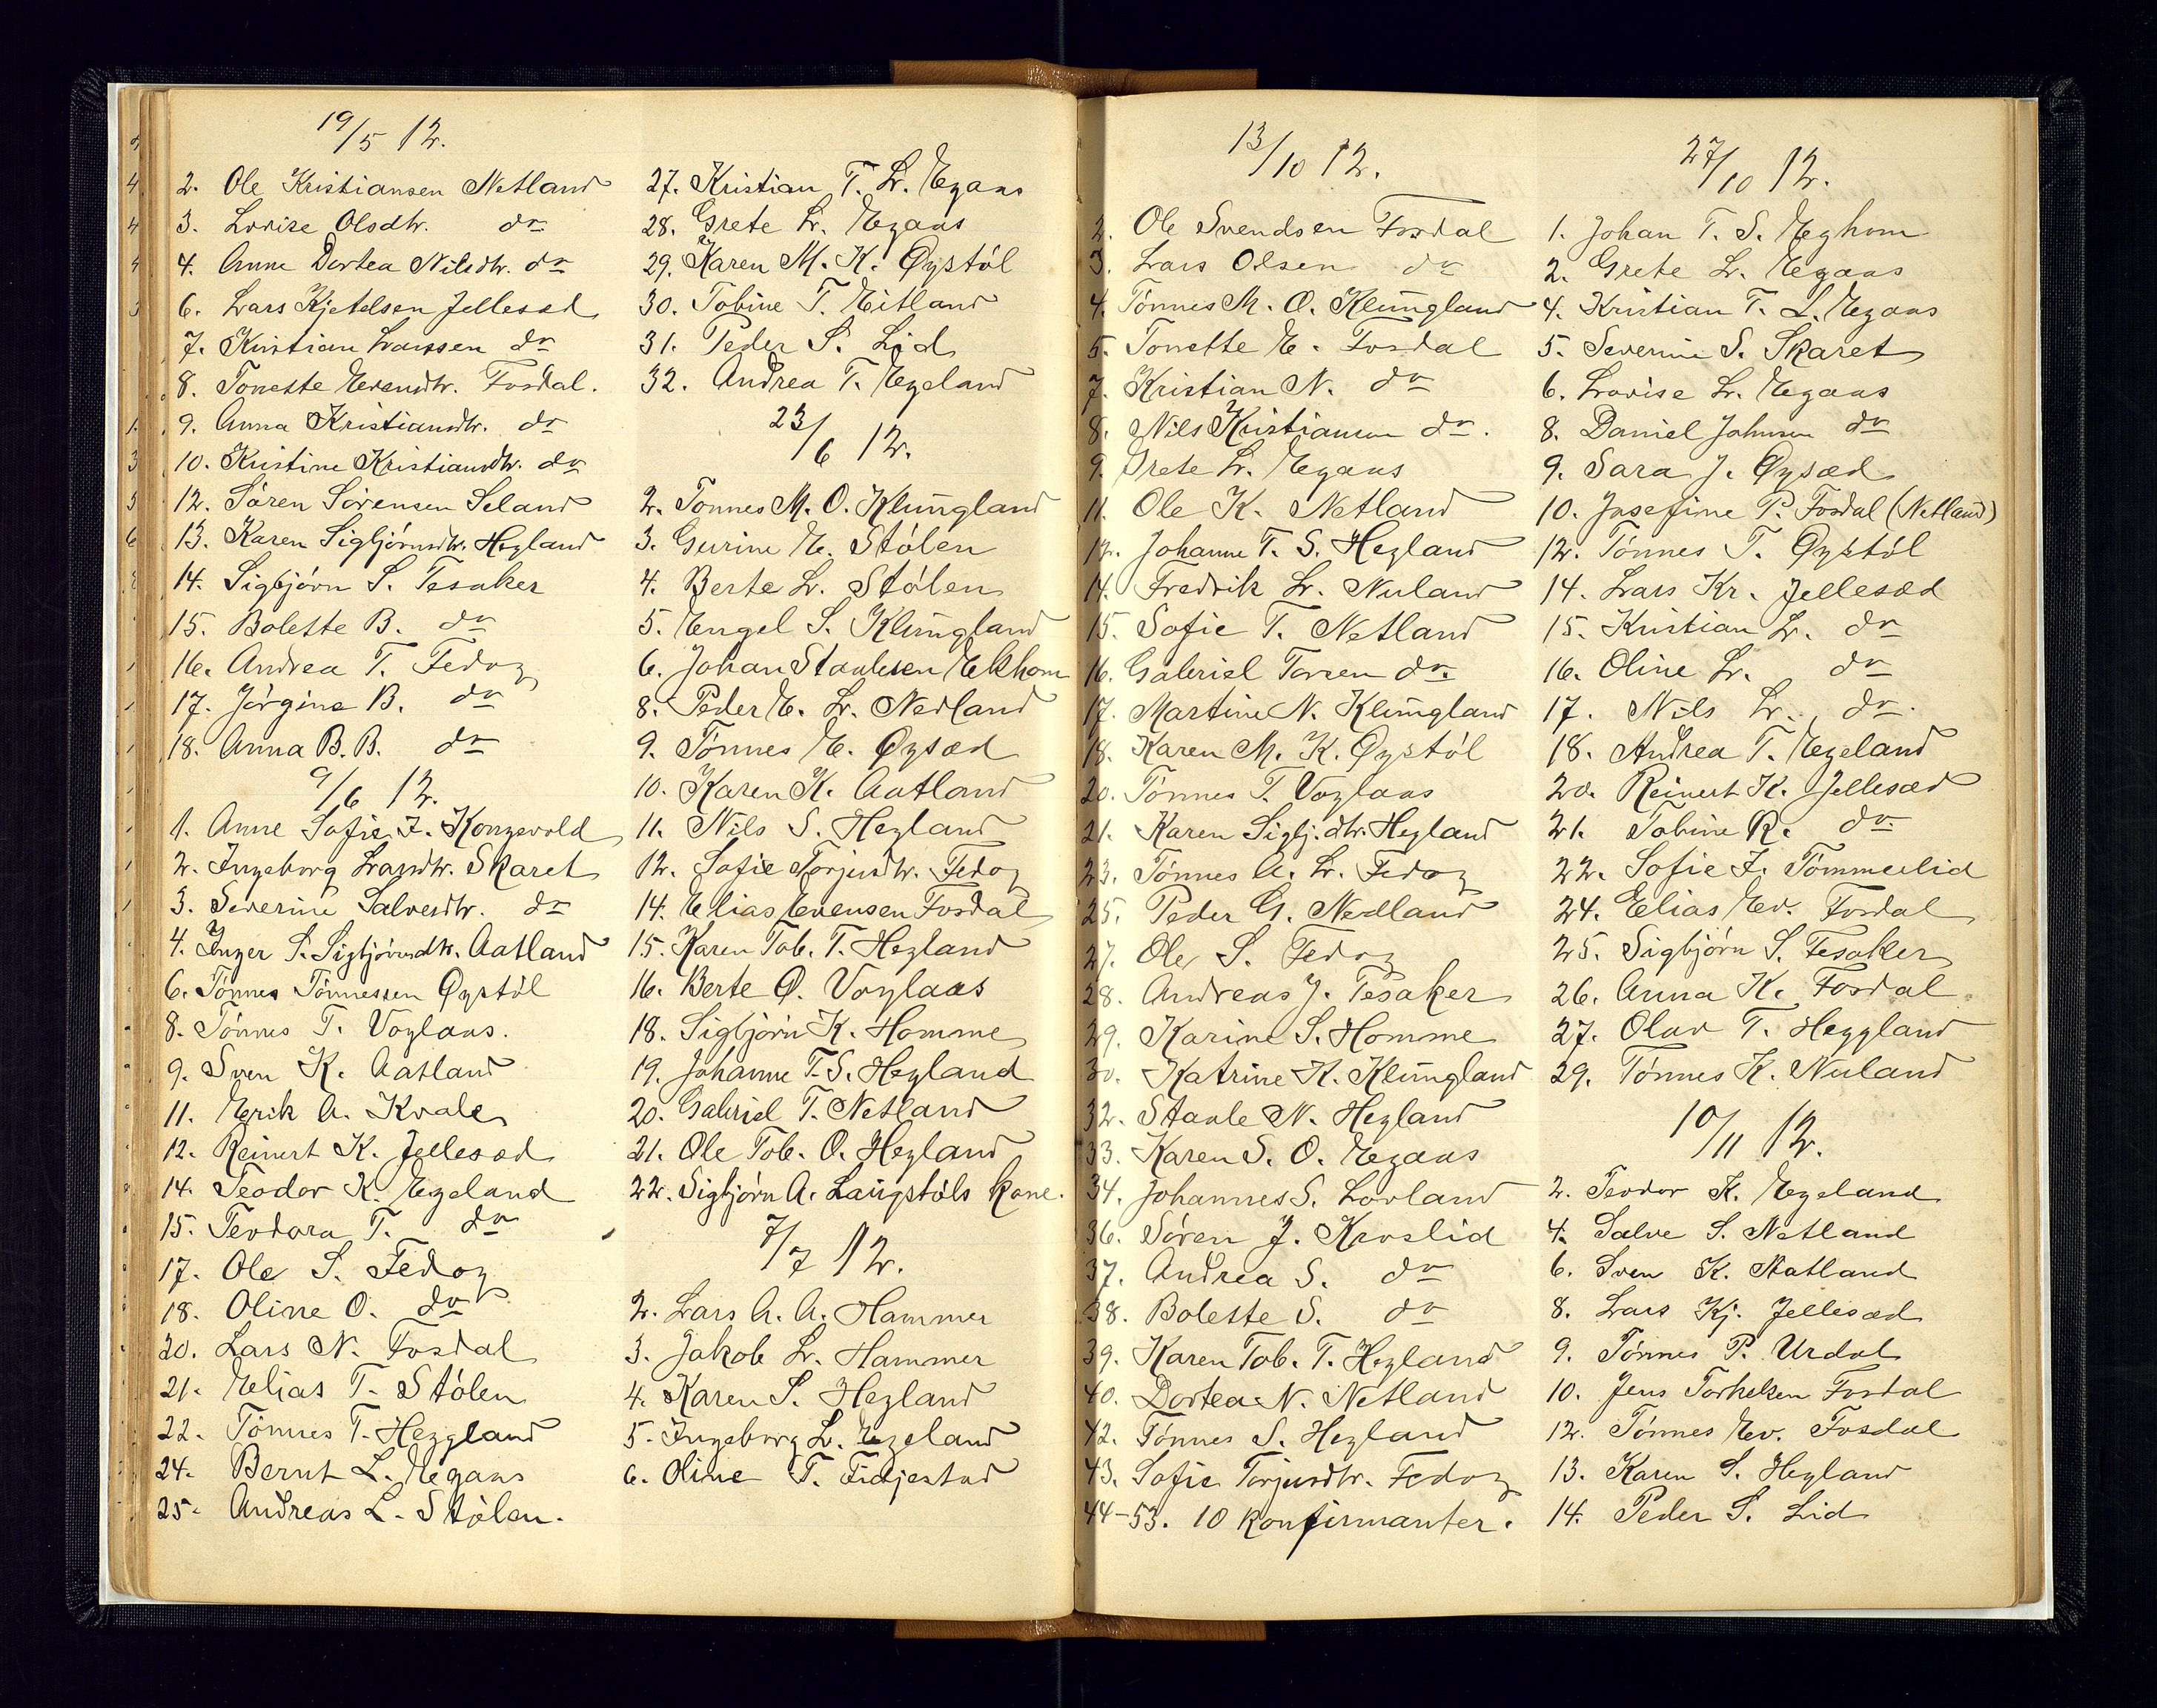 19/5 12.
2. Ole Kristiansen Netland
3. Lovise Olsdtr. do
4. Anne Dortea Nilsdtr. do
6. Lars Kjetelsen Jellesæd
7. Kristian Larssen do
8. Tonette Evendtr. Fosdal.
9. Anna Kristiansdtr. do
10. Kristine Kristiansdtr. do
12. Søren Sørensen Seland
13. Karen Sigbjørnsdtr. Hegland
14. Sigbjørn S. Tesaker
15. Bolette B. do
16. Andrea T. Fedog
17. Jørgine B. do
18. Anna B. B. do
9/6 12.
1. Anne Sofie F. Kongevold
2. Ingeborg Larsdtr. Skaret
3. Severine Salvesdtr. do
4. Inger S. Sigbjørnsdtr. Aatland
6. Tönnes Tönnessen Øystöl
8. Tönnes T. Voglaas.
9. Sven K. Aatland
11. Erik A. Kvale
12. Reinert K. Jellesæd
14. Teodor K. Egeland
15. Teodora T. do
17. Ole S. Fedog
18. Oline O. do
20. Lars N. Fosdal
21. Elias T. Stölen
22. Tönnes T. Heggland
24. Bernt L. Egaas
25. Andreas L. Stölen.
27. Kristian T. L. Egaas
28. Grete L. Egaas
29. Karen M. K. Øystöl
30. Tobine T. Eitland
31. Peder S. Lid
32. Andrea T. Egeland
23/6 12.
2. Tönnes M. O. Klungland
3. Gurine E. Stölen
4. Berte L. Stölen
5. Engel S. Klungland
6. Johan Staalesen Ekhom
8. Peder E. L. Nedland
9. Tönnes E. Øysæd
10. Karen K. Aatland
11. Nils S. Hegland
12. Sofie Torjusdtr. Fedog
14. Elias Evensen Fosdal
15. Karen Tob. T. Hegland
16. Berte O. Voglaas
18. Sigbjørn K. Homme
19. Johanne T. S. Hegland
20. Gabriel T. Netland
21. Ole Tob. O. Hegland
22. Sigbjørn A. Laugstöls kone.
7/7 12.
2. Lars A. A. Hammer
3. Jakob L. Hammer
4. Karen S. Hegland
5. Ingeborg L. Egeland
6. Oline T. Fidjestad
13/10 12.
2. Ole Svendsen Fosdal
3. Lars Olsen do
4. Tönnes M. O. Klungland
5. Tonette E. Fosdal
7. Kristian N. do
8. Nils Kristiansen do.
9. Grete L. Egaas
11. Ole K. Netland
12. Johanne T. S. Hegland
14. Fredrik L. Nuland
15. Sofie T. Netland
16. Gabriel Torsen do.
17. Martine N. Klungland
18. Karen M. K. Øystöl
20. Tönnes T. Voglaas
21. Karen Sigbj.dtr. Hegland
23. Tönnes A. L. Fedog
25. Peder G. Nedland
27. Ole S. Fedog
28. Andreas J. Tesaker
29. Karine S. Homme
30. Katrine K. Klungland
32. Staale N. Hegland
33. Karen S. O. Egaas
34. Johannes S. Lovland
36. Søren J. Kroslid
37. Andrea S. do
38. Bolette S. do
39. Karen Tob. T. Hegland
40. Dortea N. Netland
42. Tönnes S. Hegland
43. Sofie Torjusdtr. Fedog
44-53. 10 konfirmanter.
27/10 12.
1. Johan T. S. Eghom
2. Grete L. Egaas
4. Kristian T. L. Egaas
5. Severine S. Skaret
6. Lovise L. Egaas
8. Daniel Johnsen do
9. Sara J. Øysæd
10. Josefine P. Fosdal (Netland)
12. Tönnes T. Øystöl
14. Lars Kr. Jellesæd
15. Kristian L. do
16. Oline L. do
17. Nils L. do.
18. Andrea T. Egeland
20. Reinert K. Jellesæd
21. Tobine R. do
22. Sofie F. Tømmerlid
24. Elias Ev. Fosdal
25. Sigbjørn S. Tesaker
26. Anna K. Fosdal
27. Olav T. Heggland
29. Tönnes K. Nuland
10/11 12.
2. Teodor K. Egeland
4. Salve S. Netland
6. Sven K. Aatland
8. Lars Kj. Jellesæd
9. Tönnes P. Urdal
10. Jens Torkelsen Fosdal
12. Tönnes Ev. Fosdal
13. Karen S. Hegland
14. Peder S. Lid